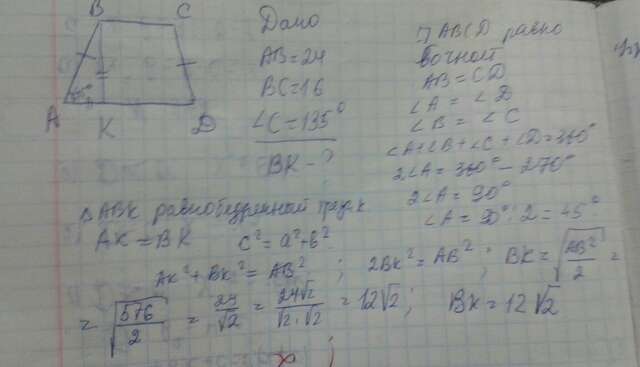 B C
A K D
45°
Дано
AB=24
BC=16
∠C=135°
BK-?
ABCD равно
бочной
AB=CD
∠A=∠D
∠B=∠C
∠A+∠B+∠C+∠D=360°
2∠A=360°-270°
2∠A=90°
∠A=90°:2=45°
△ABK равнобедренный
AK=BK c²=a²+b²
AK²+BK²=AB²; 2BK²=AB²; BK=√(AB²/2)=
=√(576/2)=24/√2=24√2/(√2·√2)=12√2; BK=12√2